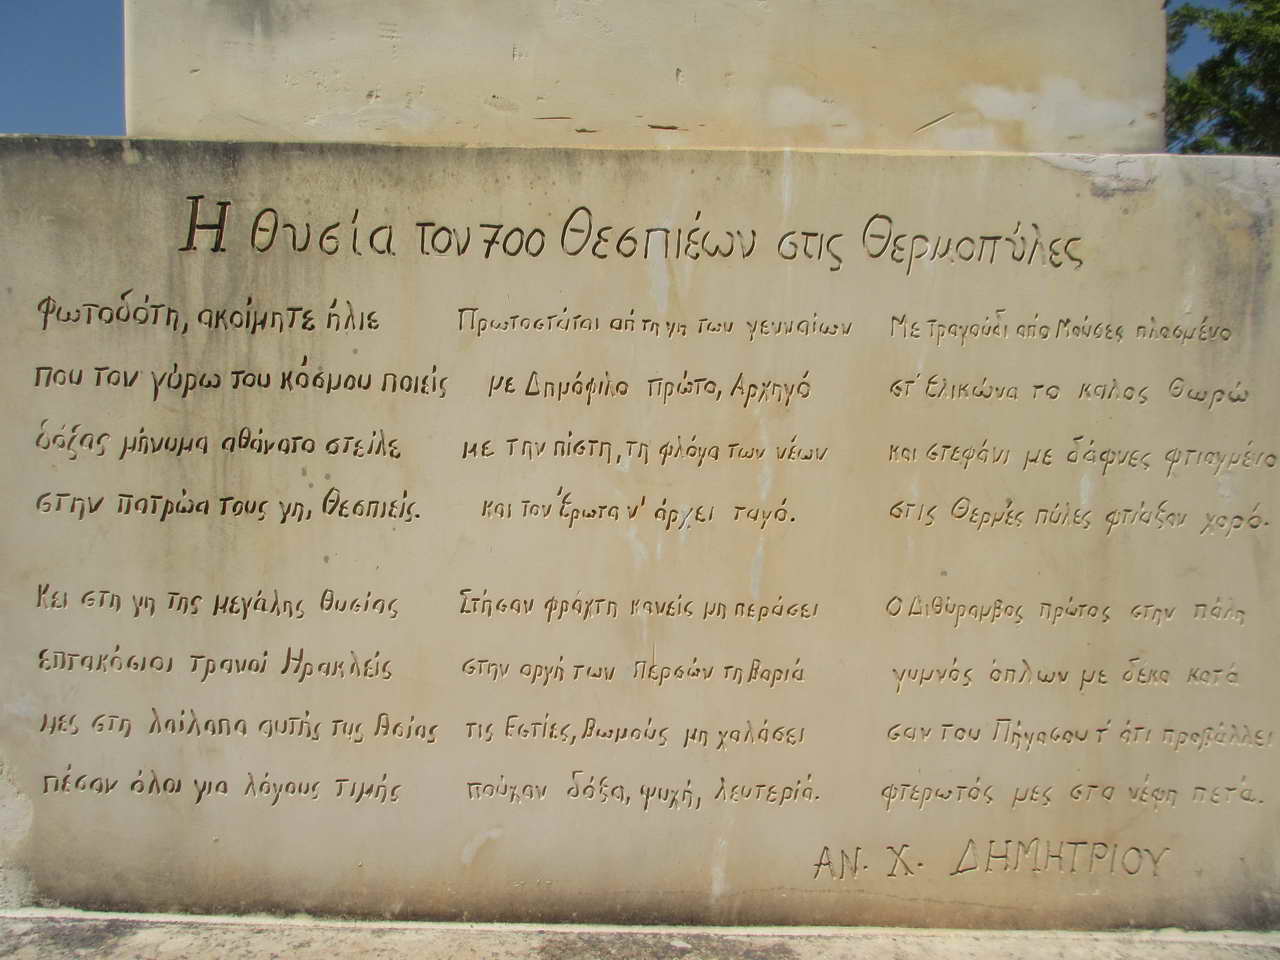 Η θυσία τον 700 Θεσπιέων στις Θερμοπύλες
Φωτοδότη, ακοίμητε ήλιε
που τον γύρω του κόσμου ποιείς
δόξας μήνυμα αθάνατο στείλε
στην πατρώα τους γη, Θεσπιείς.
Κει στη γη της μεγάλης θυσίας
επτακόσιοι τρανοί Ηρακλείς
μες στη λαίλαπα αυτής της Ασίας
πέσαν όλοι για λόγους τιμής
Πρωτοστάται απ τη γη των γενναίων
με Δημόφιλο πρώτο, Αρχηγό
με την πίστη, τη φλόγα των νέων
και τον Έρωτα ν' άρχει ταγό.
Στήσαν φράχτη κανείς μη περάσει
στην οργή των Περσών τη βαριά
τις Εστίες, Βωμούς μη χαλάσει
πούχαν δόξα, ψυχή, λευτεριά.
Με τραγούδι από Μούσες πλασμένο
στ' Ελικώνα το καλος Θωρώ
και στεφάνι με δάφνες φτιαγμένο
στις Θερμές πύλες φτιάξαν χορό.
Ο Διθύραμβος πρώτος στην πάλη
γυμνός όπλων με δέκα κατά
σαν του Πήγασου τ' άτι προβάλλει
φτερωτός μες στα νέφη πετά.
ΑΝ. Χ. ΔΗΜΗΤΡΙΟΥ